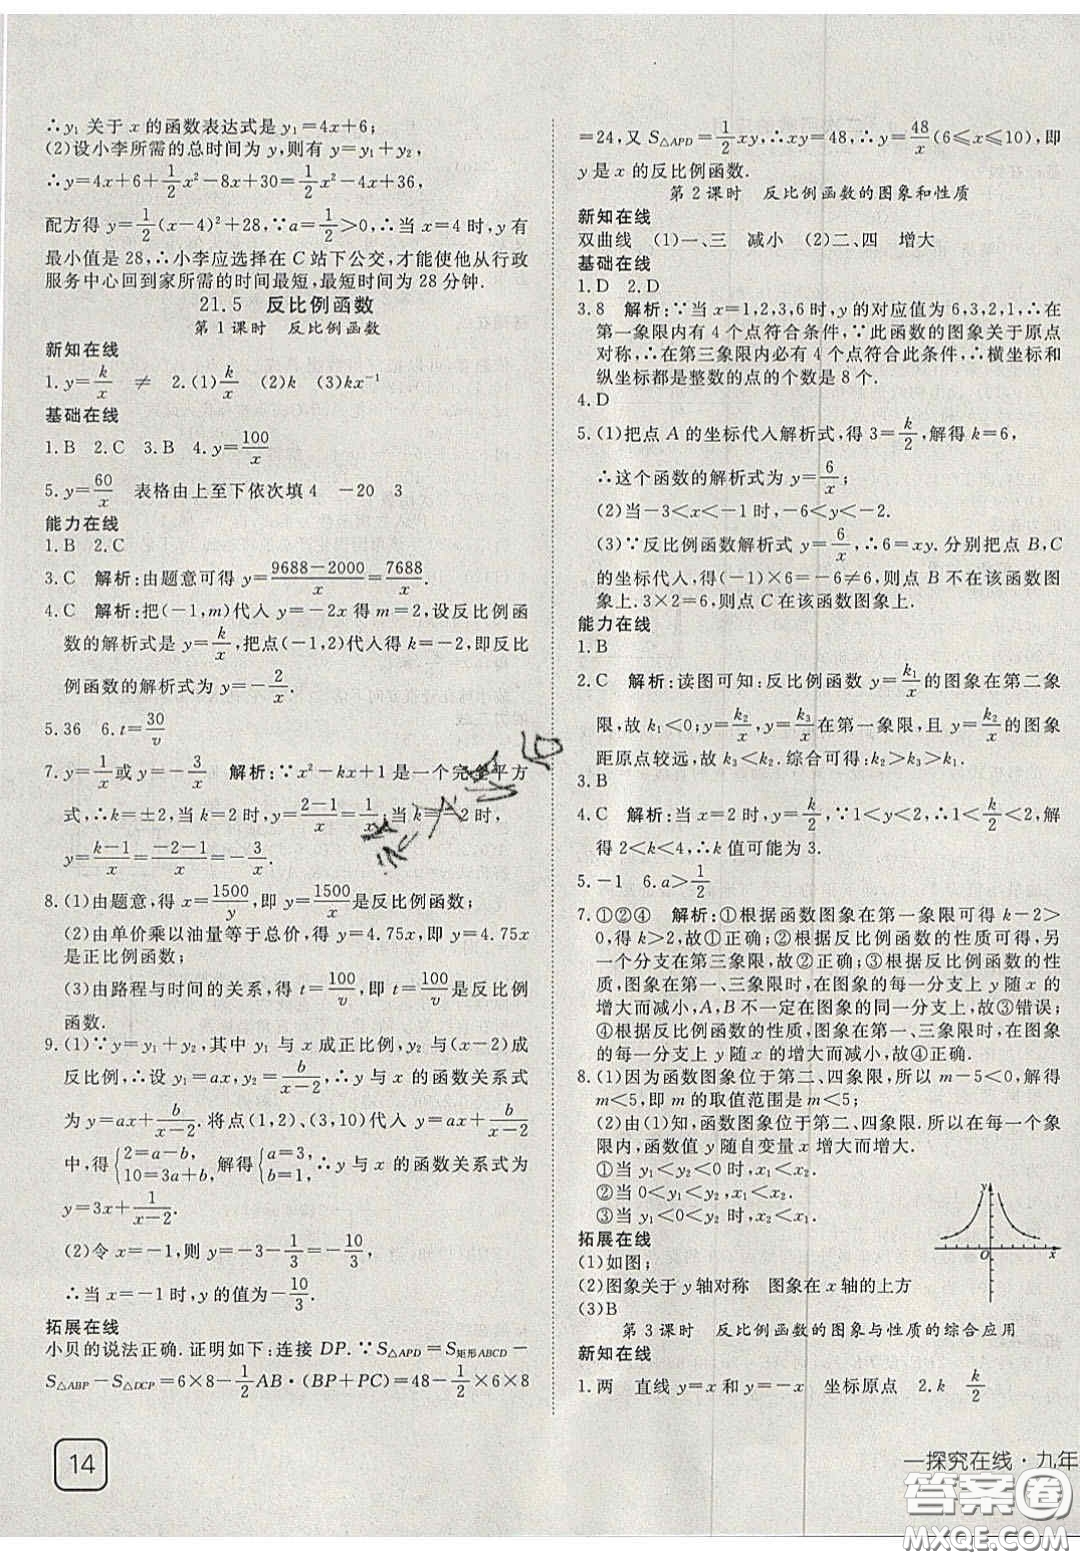 ∴y₁ 关于 x 的函数表达式是 y₁=4x+6;
(2)设小李所需的总时间为 y,则有 y=y₁+y₂,
∴y=4x+6+1/2x²-8x+30=1/2x²-4x+36,
配方得 y=1/2(x-4)²+28,∵a=1/2>0,∴当 x=4 时,y 有
最小值是 28,∴小李应选择在 C 站下公交,才能使他从行政
服务中心回到家所需的时间最短,最短时间为 28 分钟.
21.5 反比例函数
第1课时 反比例函数
新知在线
1. y=k/x ≠ 2.(1)k/x (2)k (3)kx⁻¹
基础在线
1. B 2. C 3. B 4. y=100/x
5. y=60/x 表格由上至下依次填 4 -20 3
能力在线
1. B 2. C
3. C 解析:由题意可得 y=(9688-2000)/x=7688/x.
4. C 解析:把(-1,m)代入 y=-2x 得 m=2,设反比例函
数的解析式是 y=k/x,把点(-1,2)代入得 k=-2,即反比
例函数的解析式为 y=-2/x.
5. 36 6. t=30/v
7. y=1/x或 y=-3/x 解析:∵x²-kx+1 是一个完全平方
式,∴k=±2,当 k=2 时,y=(2-1)/x=1/x,当 k=-2 时,
y=(k-1)/x=(-2-1)/x=-3/x.
8. (1)由题意,得 x=1500/y,即 y=1500/x是反比例函数;
(2)由单价乘以油量等于总价,得 y=4.75x,即 y=4.75x
是正比例函数;
(3)由路程与时间的关系,得 t=100/v,即 t=100/v是反比例
函数.
9. (1)∵y=y₁+y₂,其中 y₁ 与 x 成正比例,y₂ 与(x-2)成
反比例,∴设 y₁=ax,y₂=b/(x-2),∴y 与 x 的函数关系式
为 y=ax+b/(x-2).将点(1,2)、(3,10)代入 y=ax+b/(x-2)
中,得{2=a-b, 10=3a+b, 解得{a=3, b=1, ∴y 与 x 的函数关系式为
y=3x+1/(x-2).
(2)令 x=-1,则 y=-3-1/3=-10/3,
∴当 x=-1 时,y 的值为-10/3.
拓展在线
小贝的说法正确. 证明如下:连接 DP. ∵S△APD=S矩形ABCD-
S△ABP-S△DCP=6×8-1/2AB·(BP+PC)=48-1/2×6×8
14
=24,又 S△APD=1/2xy,∴xy=48,∴y=48/x(6≤x≤10),即
y 是 x 的反比例函数.
第2课时 反比例函数的图象和性质
新知在线
双曲线 (1)一、三 减小 (2)二、四 增大
基础在线
1. D 2. D
3. 8 解析:∵当 x=1,2,3,6 时,y 的对应值为 6,3,2,1,∴在
第一象限内有 4 个点符合条件. ∵此函数的图象关于原点
对称,∴在第三象限内必有 4 个点符合此条件,∴横坐标和
纵坐标都是整数的点的个数是 8 个.
4. D
5. (1)把点 A 的坐标代入解析式,得 3=k/2,解得 k=6,
∴这个函数的解析式为 y=6/x.
(2)当-3<x<-1 时,-6<y<-2.
(3)∵反比例函数解析式 y=6/x,∴6=xy. 分别把点 B,C
的坐标代入,得(-1)×6=-6≠6,则点 B 不在该函数图
象上. 3×2=6,则点 C 在该函数图象上.
能力在线
1. B
2. C 解析:读图可知:反比例函数 y=k₁/x的图象在第二象
限,故 k₁<0;y=k₂/x,y=k₃/x在第一象限,且 y=k₂/x的图象
距原点较远,故 k₃<k₂. 综合可得:k₂>k₃>k₁.
3. B
4. C 解析:当 x=2 时,y=k/2,∵1<y<2,∴1<k/2<2,解
得 2<k<4,∴k 值可能为 3.
5. -1 6. a>1/2
7. ①②④ 解析:①根据函数图象在第一象限可得 k-2>
0,得 k>2,故①正确;②根据反比例函数的性质可得,另
一个分支在第三象限,故②正确;③根据反比例函数的性
质,图象在第一、三象限时,在图象的每一分支上 y 随 x 的
增大而减小,A,B 不一定在图象的同一分支上,故③错误;
④根据反比例函数的性质,图象在第一、三象限时,在图象
的每一分支上 y 随 x 的增大而减小,故④正确.
8. (1)因为函数图象位于第二、四象限,所以 m-5<0,解得
m<5,即 m 的取值范围是 m<5;
(2)由(1)知,函数图象位于第二、四象限. 所以在每一个象
限内,函数值 y 随自变量 x 增大而增大.
①当 y₁<y₂<0 时,x₁<x₂;
②当 0<y₁<y₂,x₁<x₂;
③当 y₁<0<y₂ 时,x₂<x₁
拓展在线
(1)如图;
(2)图象关于 y 轴对称 图象在 x 轴的上方
(3)B
y
O
x
第3课时 反比例函数的图象与性质的综合应用
新知在线
1. 两 直线 y=x 和 y=-x 坐标原点 2. k k/2
一探究在线·九年
答案圈
MXQE.COM